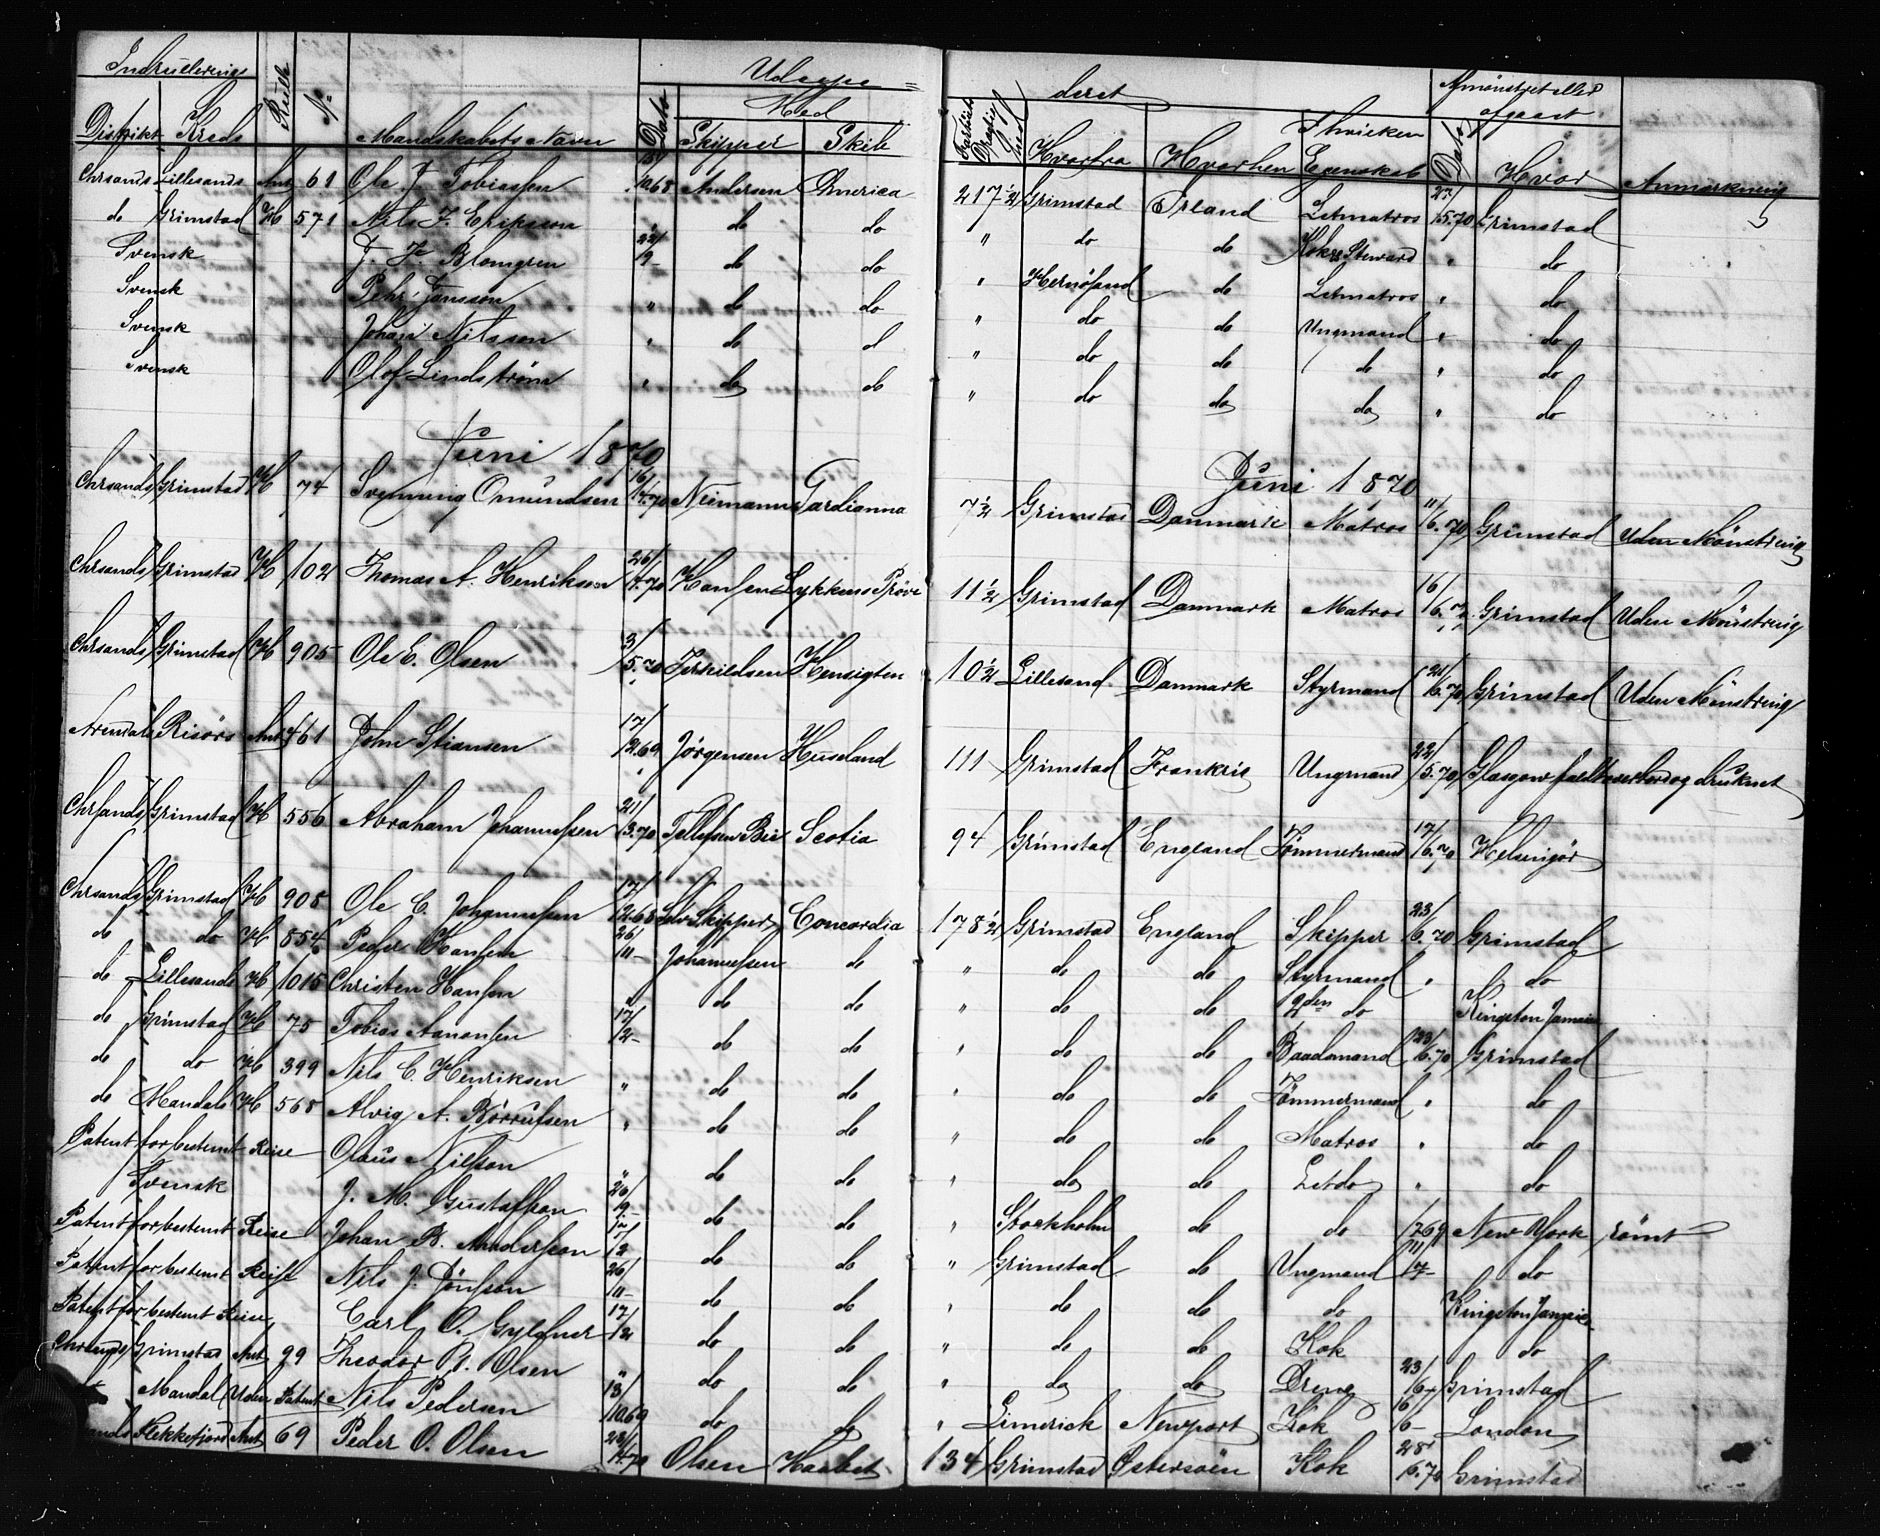 Indrullerings Rulle No Udeype= deret Afmönstret eller
Distrikt Kreds Mandskabets Navn Dato Med Fartöiets Drægtighed Hvorfra Hvorhen I hvilken Egenskab Dato afgaaet Hvor Anmærkning
Skipper Skib
Chrsands Lillesands Ant 61 Ole J. Tobiassen 10.68 Andersen America 217 1/2 Grimstad Irland Letmatros 27/5.70 Grimstad
do Grimstad H 571 Nils F. Eriksson " do do " do do Kok & Steward " do
Svensk J. F. Blomgren 22/9 - do do " Hernösand do Letmatros " do
Svensk Pehr Jonsson " do do " do do Ungmand " do
Svensk Johan Nilsson " do d " do do do " do
Svensk Olof Lindström " do do " do do do " do
Juni 1870 Juni 1870
Chrsands Grimstad H 74 Svenning Omundsen 16/4.70 Neimann Gardianna 7 1/2 Grimstad Danmark Matros 11/6.70 Grimstad Uden Mönstring
Chrsands Grimstad H 102 Thomas A. Henriksen 26/4.70 Hansen Lykkens Pröve 11 1/2 Grimstad Danmark Matros 16/6.70 Grimstad Uden Mönstring
Chrsands Grimstad H 905 Ole E. Olsen 3/5.70 Terkildsen Hensigten 10 1/2 Lillesand Danmark Styrmand 21/6.70 Grimstad Uden Mönstring
Arendals Risörs Ant 461 John Stiansen 17/12.69 Jörgensen Huseland 111 Grimstad Frankrig Ungmand 22/5.70 Glasgow faldt overbord og druknet
Chrsands Grimstad H 556 Abraham Johannessen 21/3.70 Tellefsen Bie Scotia 94 Grimstad England Tömmermand 17/6.70 Helsingör
Chrsands Grimstad H 908 Ole C. Johannessen 17/12.68 Selv Skipper Concordia 178 1/2 Grimstad England Skipper 23/6.70 Grimstad
do do H 854 Peder Hansen 26/11 - Johannessen do " do do Styrmand " do
do Lillesands H 1015 Christen Hansen " do do " do do 2den do Kingston Jamaica
do Grimstad H 75 Tobias Aanonsen 17/12 - do do " do do Baadsmand 23/6.70 Grimstad
do do H 399 Nils C. Henriksen " do do " do do Tömmermand " do
do Mandals H 568 Alvig A. Börrufsen " do do " do do Matros " do
Patent for bestemt Reise Olaus Nilsson " do do " do do Letdo " do
Svensk J. M. Gustafsson 20/9 - do do " Stockholm do do 1769 New York römt
Patent for bestemt Reise Johan B. Anderssen 17/12 do do " Grimstad do Ungmand do
Patent for bestemt Reise Nils J. Jönsson 26/11 - do do " do do do Kingston Jamaica
Patent for bestemt Reise Carl O. Gyldner 17/12 do do " do do Kok do
Chrsands Grimstad Ant 99 Theodor B. Olsen " do do " do do Dreng 23/6 - Grimstad
Mandal Uden Patent Nils Pedersen 13/10.69 do do " Limerick Newport Kok 16/6 - London
Flekkefjord Ant 69 Peder O. Olsen 23/4.70 Olsen Haabet 134 Grimstad Östersöen Kok 28/6.70 Grimstad